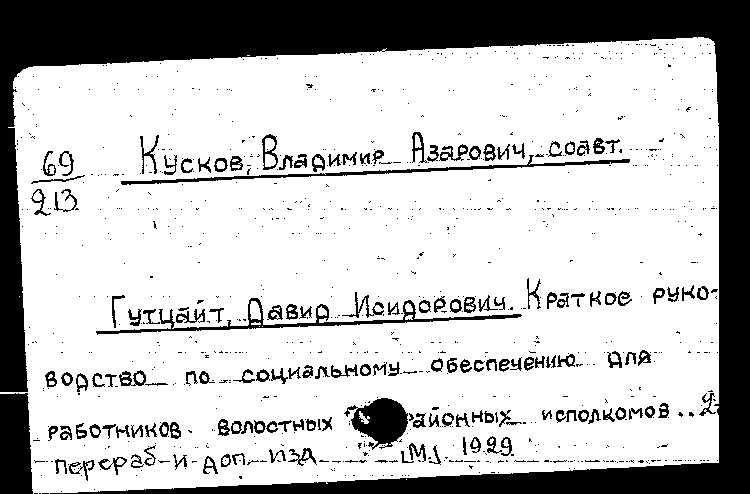 69
213
Кусков, Владимир Азарович, соавт.
Гутцайт, Давид Исидорович. Краткое руко-
водство по социальному обеспечению для
работников волостных районных исполкомов.. 2-
перераб и доп. изд М., 1929